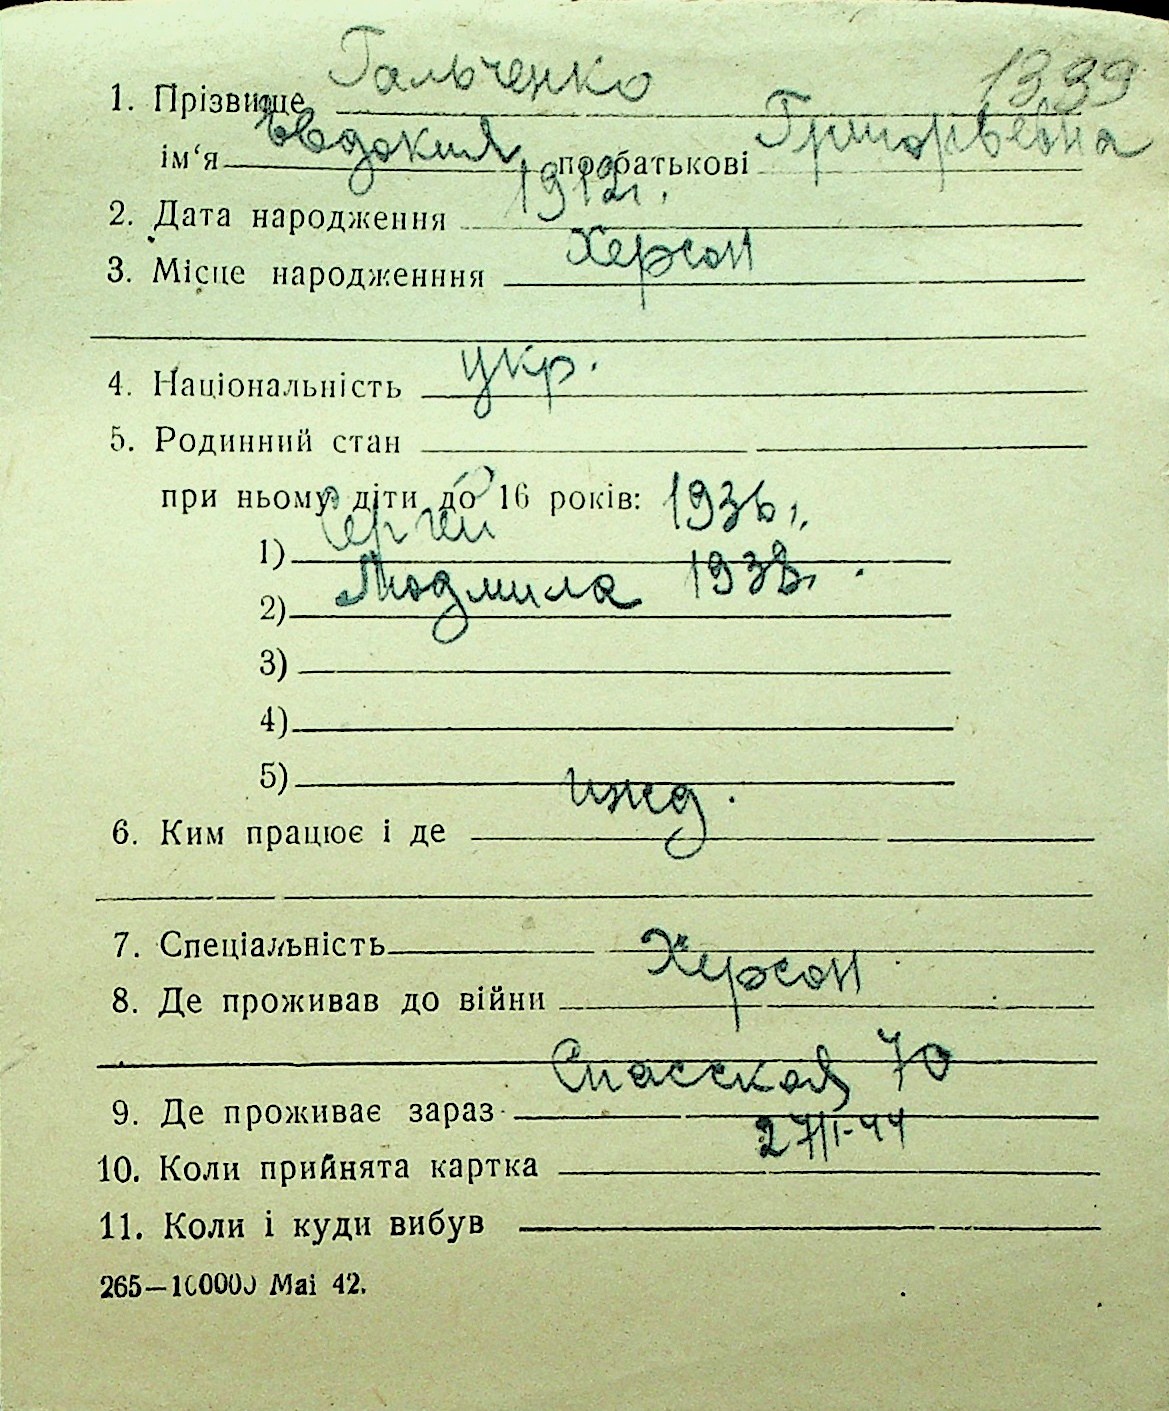 1399
1. Прізвище Гальченко
ім‘я Евдокия по батькові Григорьевна
2. Дата народження 1912г.
3. Місце народженння Херсон
4. Національність укр.
5. Родинний стан
при ньому діти до 16 років:
1) Сергей 1936г.
2) Людмила 1938г.
3)
4)
5)
6. Ким працює і де ижд.
7. Спеціальність
8. Де проживав до війни Херсон
9. Де проживає зараз Спасская 70
10. Коли прийнята картка 27/I-44
11. Коли і куди вибув
265—100000 Mai 42.